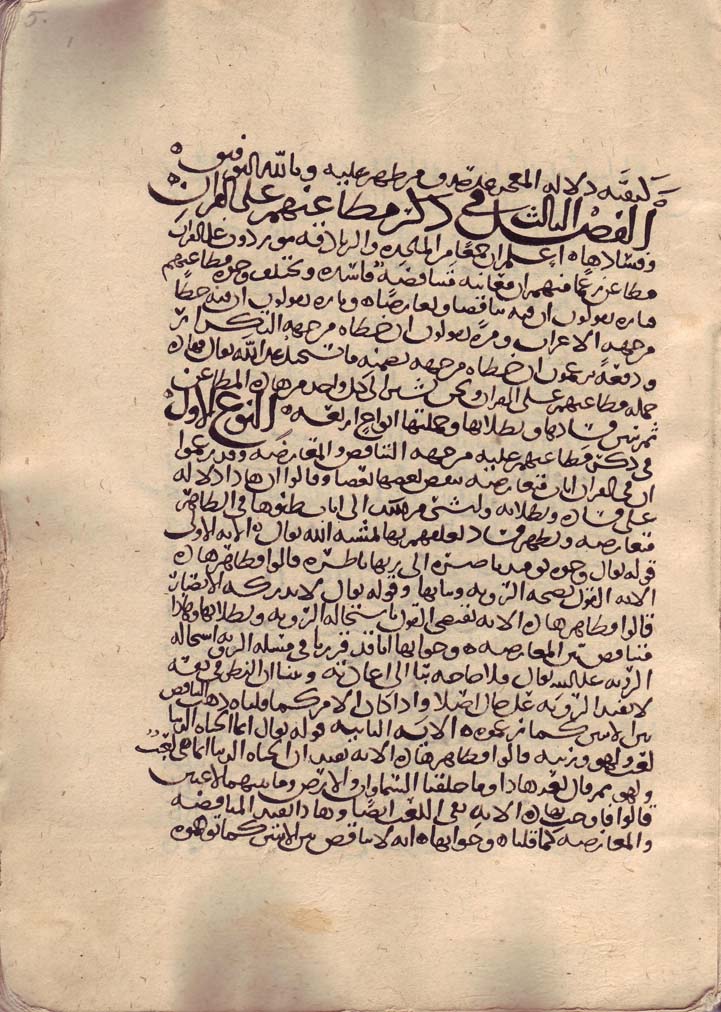 كيفية دلالة المعجز على صدق من ظهر عليه وبالله التوفيق
الفصل الثالث في ذكر مطاعنهم على القرآن
وفسادها اعلم أن جمعا من الملحدة والزنادقة موردون على القرآن
مطاعن زعما منهم أن معانيه متناقضة فاسدة وتختلف وجوه مطاعنهم
فتارة يقولون إن فيه تناقضا وتعارضا وتارة يقولون إن فيه خطأ
من جهة الإعراب ومرة يقولون إن خطأه من جهة التكرار
ودفعة يزعمون أن خطأه من جهة تضمنه ما يستحيل على الله تعالى فهذه
جملة مطاعنهم على القرآن ونحن نشير إلى كل واحد من هذه المطاعن
ثم نبين فسادها وبطلانها وجملتها أنواع أربعة النوع الأول
في ذكر مطاعنهم عليه من جهة التناقض والمعارضة وقد زعموا
أن في القرآن آيات متعارضة ينقض بعضها بعضا وقالوا إن هذا دلالة
على فساده وبطلانه ولنشر إلى آيات ظنوها في الظاهر
متعارضة ونظهر فساد تعلقهم بها بمشيئة الله تعالى الآية الأولى
قوله تعالى وجوه يومئذ ناضرة إلى ربها ناظرة قالوا فظاهر هذه
الآية القول بصحة الرؤية وثباتها وقوله تعالى لا تدركه الأبصار
قالوا فظاهر هذه الآية تقتضي القول باستحالة الرؤية وبطلانها وهذا
فتناقض بين المعارضة وجوابها أنا قد قررنا في مسألة الرؤية استحالة
الرؤية على الله تعالى فلا حاجة بنا إلى إعادته وبينا أن النظر في نفسه
لا يفيد الرؤية على حال أصلا وإذا كان الأمر كما قلناه ذهب التناقض
بين الآيتين كما زعموه الآية الثانية قوله تعالى إنما الحياة الدنيا
لعب ولهو وزينة قالوا فظاهر هذه الآية تفيد أن الحياة الدنيا إنما هي لعب
ولهو ثم قال بعد هذا وما خلقنا السماوات والأرض وما بينهما لاعبين
قالوا فأوجب بهذه الآية نفي اللعب أيضا وهذا يفيد المناقضة
والمعارضة كما قلناه وجوابها أنه لا تناقض بين الآيتين كما توهموه